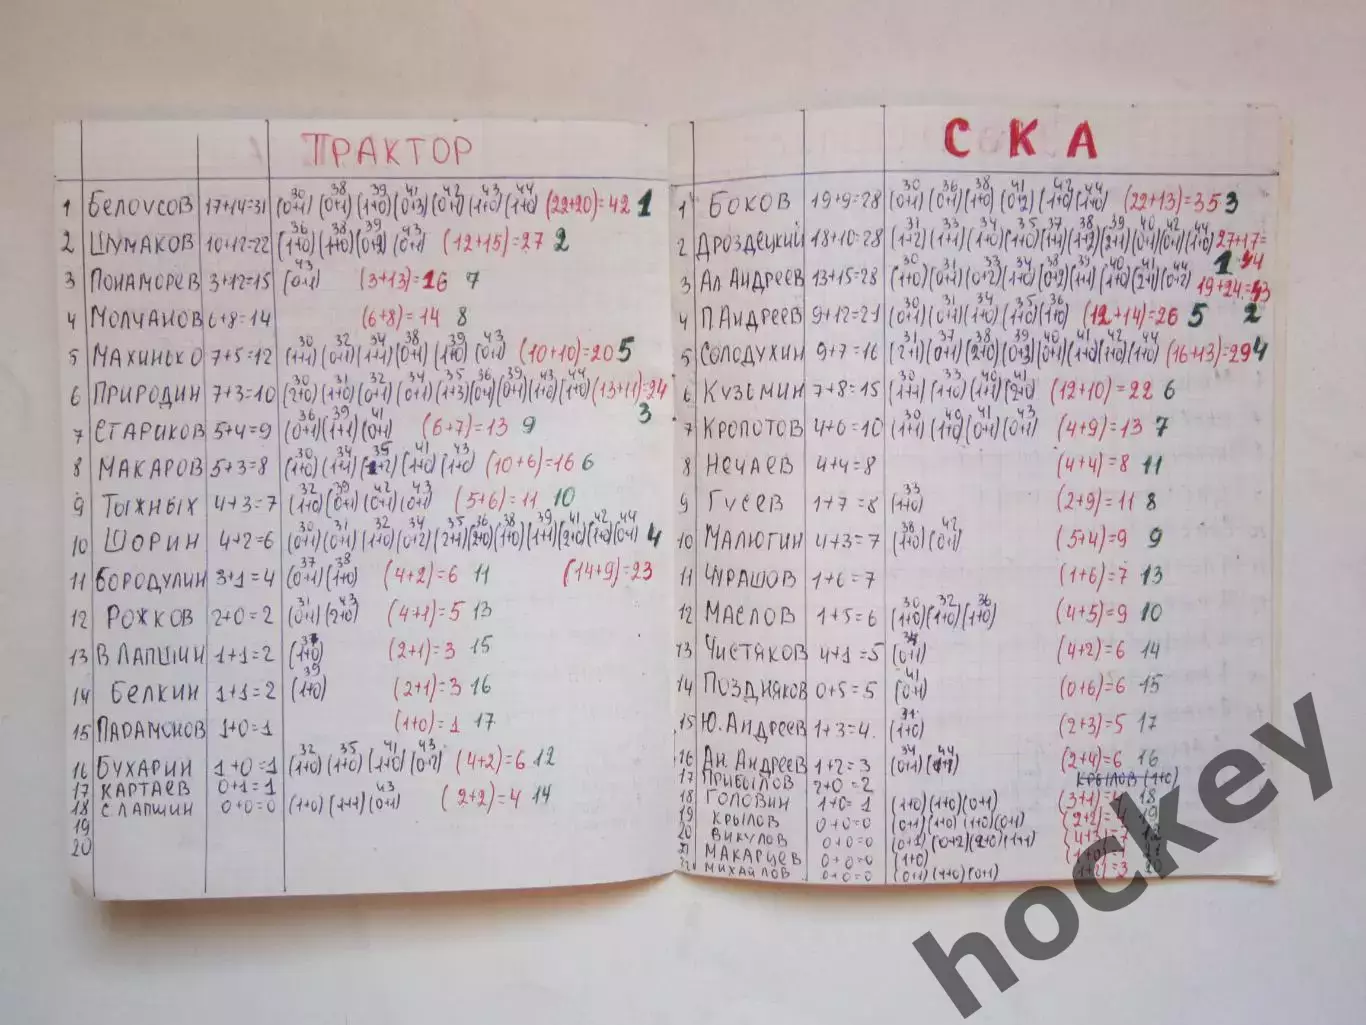 ТРАКТОР
1 БЕЛОУСОВ 17+14=31 (0+1) 30 (0+1) 38 (1+0) 39 (0+3) 41 (0+1) 42 (1+0) 43 (1+0) 44 (22+20)=42 1
2 ШУМАКОВ 10+12=22 (1+0) 36 (1+0) 38 (0+2) 39 (0+1) 43 (12+15)=27 2
3 ПОНАМОРЕВ 3+12=15 (0+1) 43 (3+13)=16 7
4 МОЛЧАНОВ 6+8=14 (6+8)=14 8
5 МАХИНЬКО 7+5=12 (1+1) 30 (0+1) 32 (1+1) 34 (0+1) 38 (1+0) 39 (0+1) 43 (10+10)=20 5
6 ПРИРОДИН 7+3=10 (2+0) 30 (1+0) 31 (0+1) 32 (0+1) 34 (1+3) 35 (0+1) 36 (0+1) 39 (1+0) 43 (1+0) 44 (13+11)=24 3
7 СТАРИКОВ 5+4=9 (0+1) 36 (1+1) 39 (0+1) 41 (6+7)=13 9
8 МАКАРОВ 5+3=8 (1+0) 30 (1+1) 34 (1+2) 35 (1+0) 41 (1+0) 43 (10+6)=16 6
9 ТЫЖНЫХ 4+3=7 (1+0) 32 (0+1) 39 (0+1) 42 (0+1) 43 (5+6)=11 10
10 ШОРИН 4+2=6 (0+1) 30 (0+1) 31 (1+0) 32 (0+2) 34 (2+1) 35 (2+0) 36 (1+0) 38 (1+1) 39 (2+0) 41 (1+0) 42 (0+1) 44 4
11 БОРОДУЛИН 3+1=4 (0+1) 37 (1+0) 38 (4+2)=6 11 (14+9)=23
12 РОЖКОВ 2+0=2 (0+1) 31 (2+0) 43 (4+1)=5 13
13 В ЛАПШИН 1+1=2 (1+0) (2+1)=3 15
14 БЕЛКИН 1+1=2 (1+0) 39 (2+1)=3 16
15 ПАРАМОНОВ 1+0=1 (1+0)=1 17
16 БУХАРИН 1+0=1 (1+0) 32 (1+0) 35 (1+0) 41 (0+2) 43 (4+2)=6 12
17 КАРТАЕВ 0+1=1
18 С ЛАПШИН 0+0=0 (1+0) (1+1) (0+1) 43 (2+2)=4 14
19
20
СКА
1 БОКОВ 19+9=28 (0+1) 30 (0+1) 36 (1+0) 38 (0+2) 41 (1+0) 42 (1+0) 44 (22+13)=35 3
2 ДРОЗДЕЦКИЙ 18+10=28 (1+2) 31 (1+1) 33 (1+0) 34 (1+0) 35 (1+1) 37 (1+2) 38 (2+1) 39 (0+1) 40 (0+1) 42 (1+0) 44 27+17=44 1
3 АЛ АНДРЕЕВ 13+15=28 (1+0) 30 (0+1) 31 (0+2) 33 (1+0) 34 (0+2) 38 (1+1) 39 (1+0) 40 (2+1) 41 (0+2) 44 19+24=43 2
4 П. АНДРЕЕВ 9+12=21 (0+1) 30 (0+1) 31 (1+0) 34 (1+0) 35 (1+0) 36 (12+14)=26 5
5 СОЛОДУХИН 9+7=16 (2+1) 31 (0+1) 37 (2+0) 38 (0+3) 39 (0+1) 40 (1+0) 41 (1+0) 42 (1+0) 44 (16+13)=29 4
6 КУЗЬМИН 7+8=15 (1+1) 30 (1+0) 33 (1+1) 40 (2+0) 41 (12+10)=22 6
7 КРОПОТОВ 4+6=10 (1+1) 30 (1+0) 40 (0+1) 41 (0+1) 43 (4+9)=13 7
8 НЕЧАЕВ 4+4=8 (4+4)=8 11
9 ГУСЕВ 1+7=8 (1+0) 33 (2+9)=11 8
10 МАЛЮГИН 4+3=7 (1+0) 38 (0+1) 42 (5+4)=9 9
11 ЧУРАШОВ 1+6=7 (1+6)=7 13
12 МАСЛОВ 1+5=6 (1+0) 30 (1+0) 32 (1+0) 36 (4+5)=9 10
13 ЧИСТЯКОВ 4+1=5 (0+1) (4+2)=6 14
14 ПОЗДНЯКОВ 0+5=5 (0+1) 41 (0+6)=6 15
15 Ю. АНДРЕЕВ 1+3=4. (1+0) 31 (2+3)=5 17
16 АН. АНДРЕЕВ 1+2=3 (0+1) 34 (1+1) 44 (2+4)=6 16
17 ПРИБЫЛОВ 2+0=2 КРЫЛОВ (1+0)
18 ГОЛОВИН 1+0=1 (1+0) (1+0) (0+1) (3+1)=4 18
19 КРЫЛОВ 0+0=0 (0+1) (1+0) (1+0) (0+1) (2+2)=4 19
20 ВИКУЛОВ 0+0=0 (0+1) (0+2) (2+0) (1+1) 12
21 МАКАРЦЕВ 0+0=0 (1+0) (1+0)=1 21
22 МИХАЙЛОВ 0+0=0 (0+1) (1+0) (0+1) (1+2)=3 20
hockey